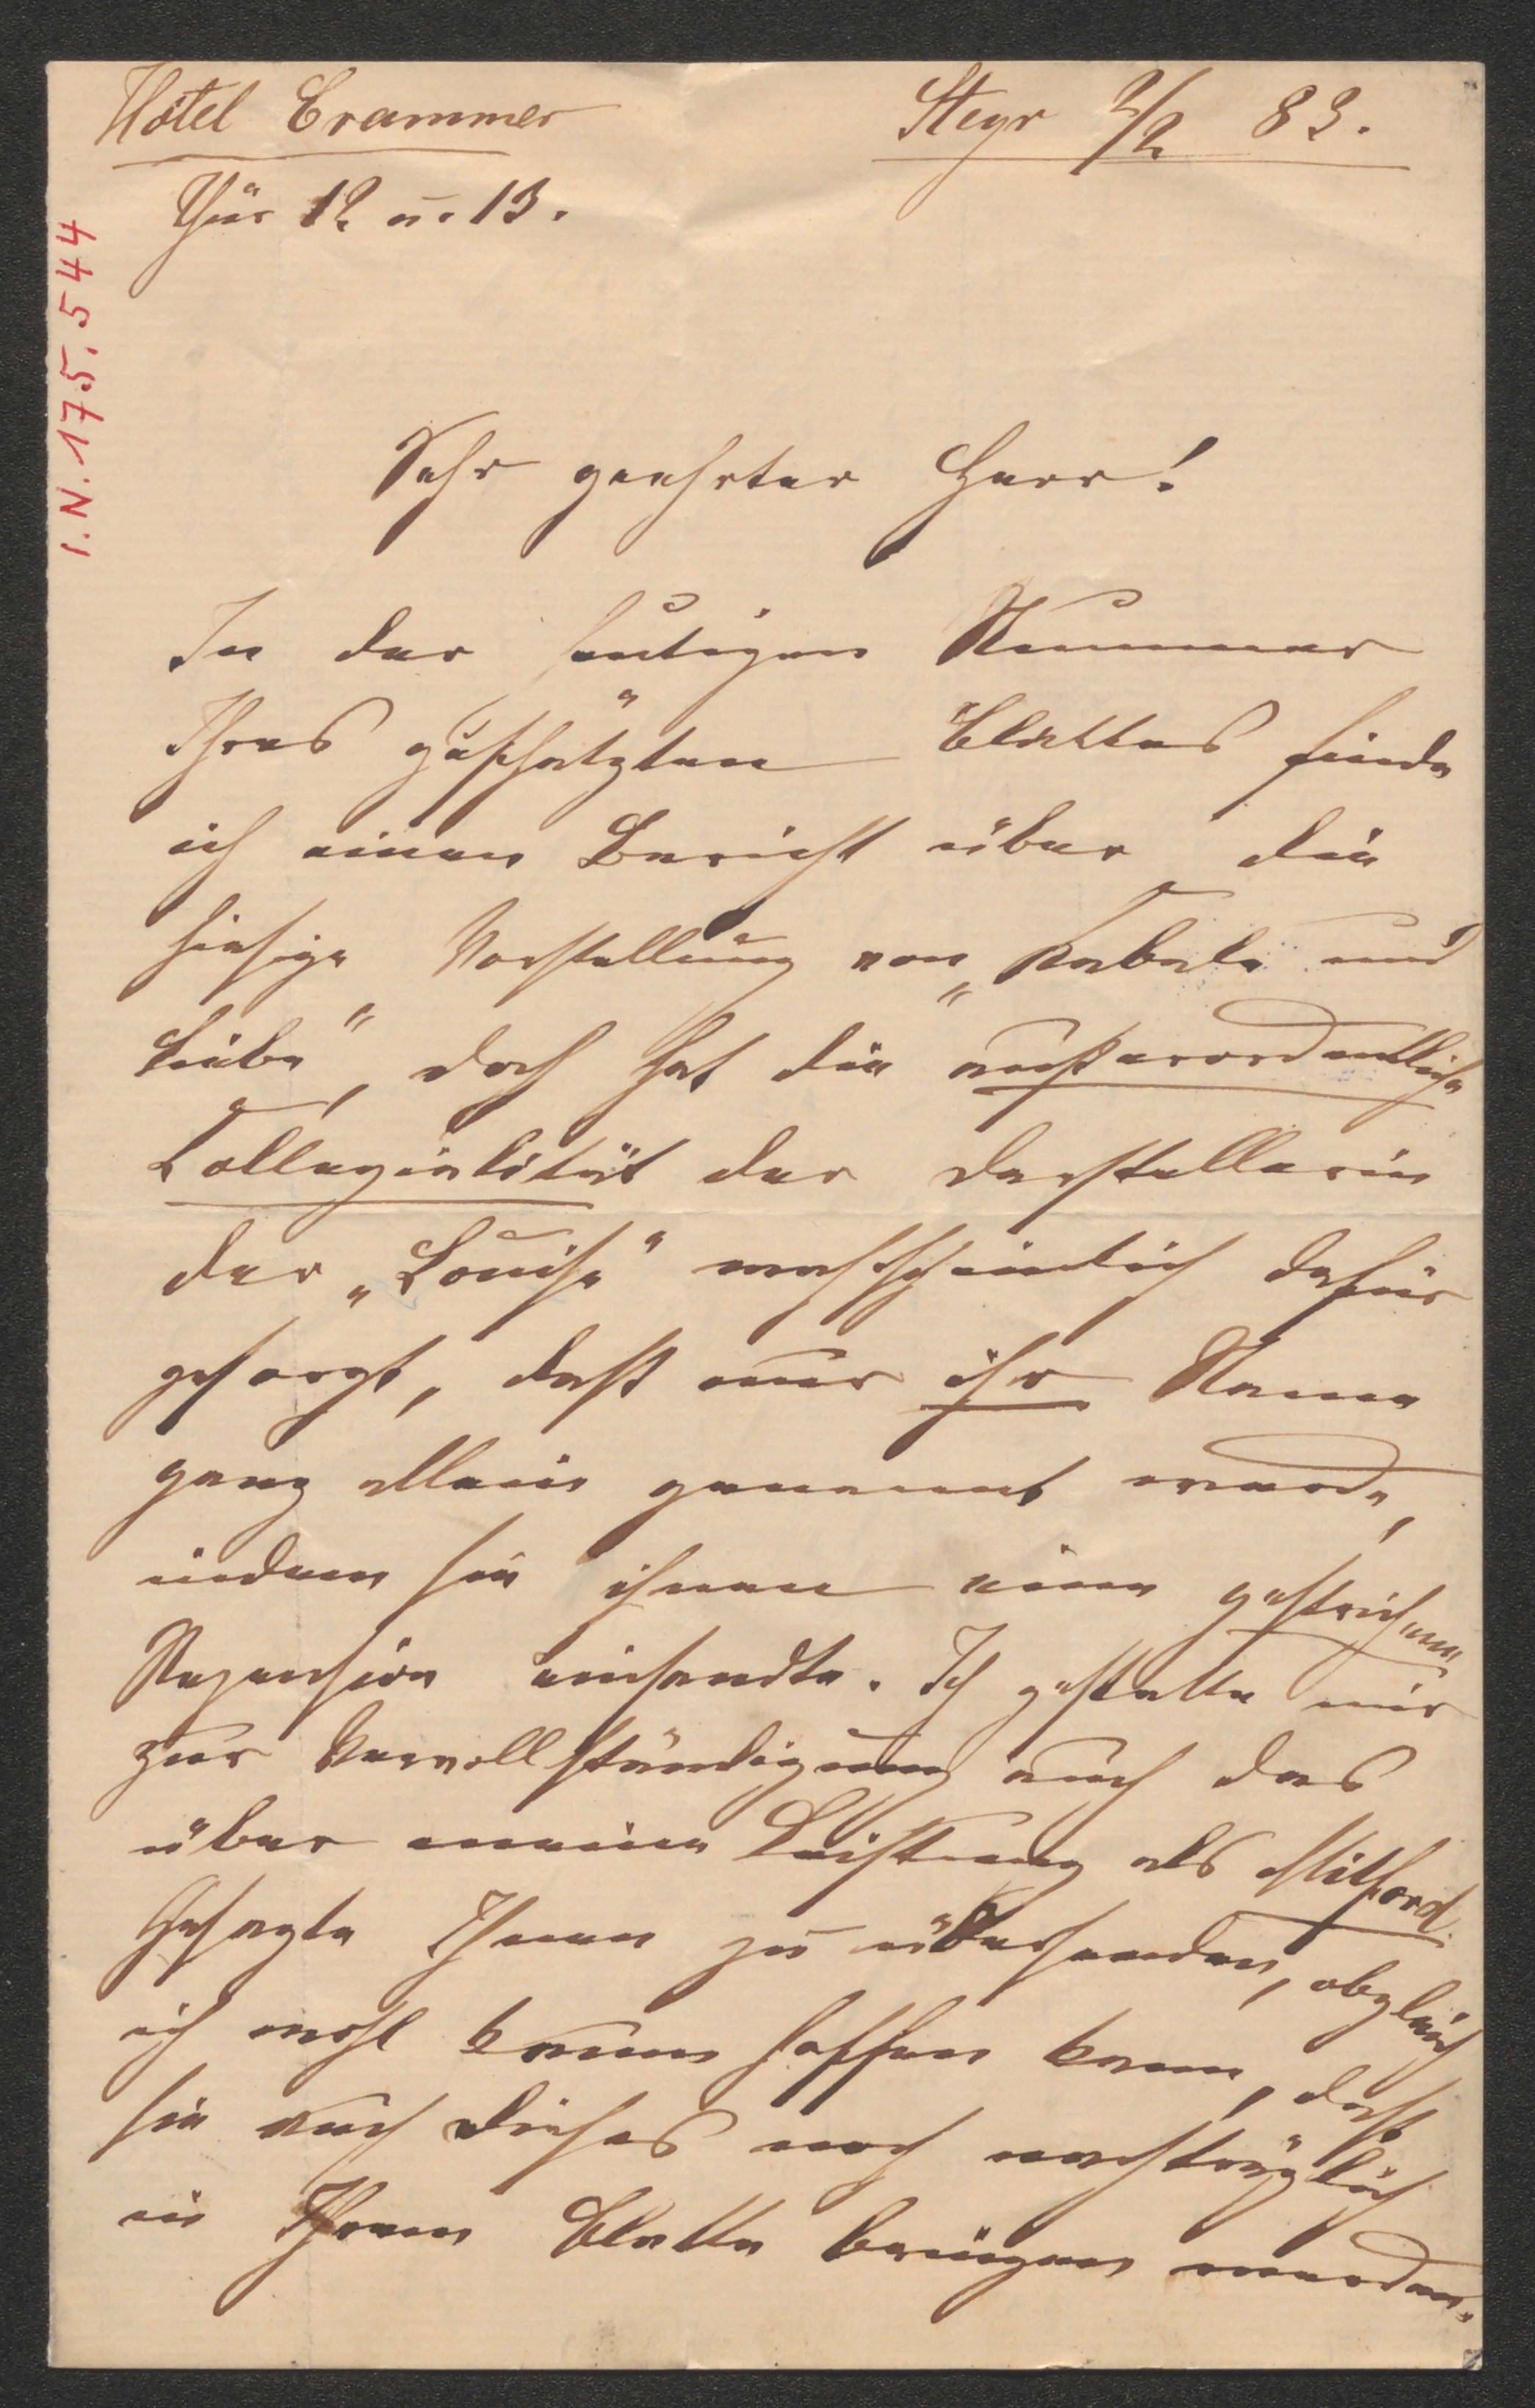 Hôtel Crammer
Steyr 2/2 83.
Thür 12 u. 13.
I.N. 175.544
Sehr geehrter Herr!
In der heutigen Nummer
Ihres geschätzten Blattes finde
ich einen Bericht über die
hiesige Vorstellung von „Kabale und
Liebe", doch hat die außerordentliche
Collegialität der Darstellerin
der „Louise" wahrscheinlich dafür
gesorgt, daß nur ihr Name
ganz allein genannt werde,
indem sie ihnen eine gestrichene
Rezension einsandte. Ich gestatte mir
zur Vervollständigung auch das
über meine Leistung als Milford
Gesagte Ihnen zu übersenden, obgleich
ich wohl kaum hoffen kann, daß
sie auch dieses noch nachträglich
in Ihrem Blatte bringen werden.